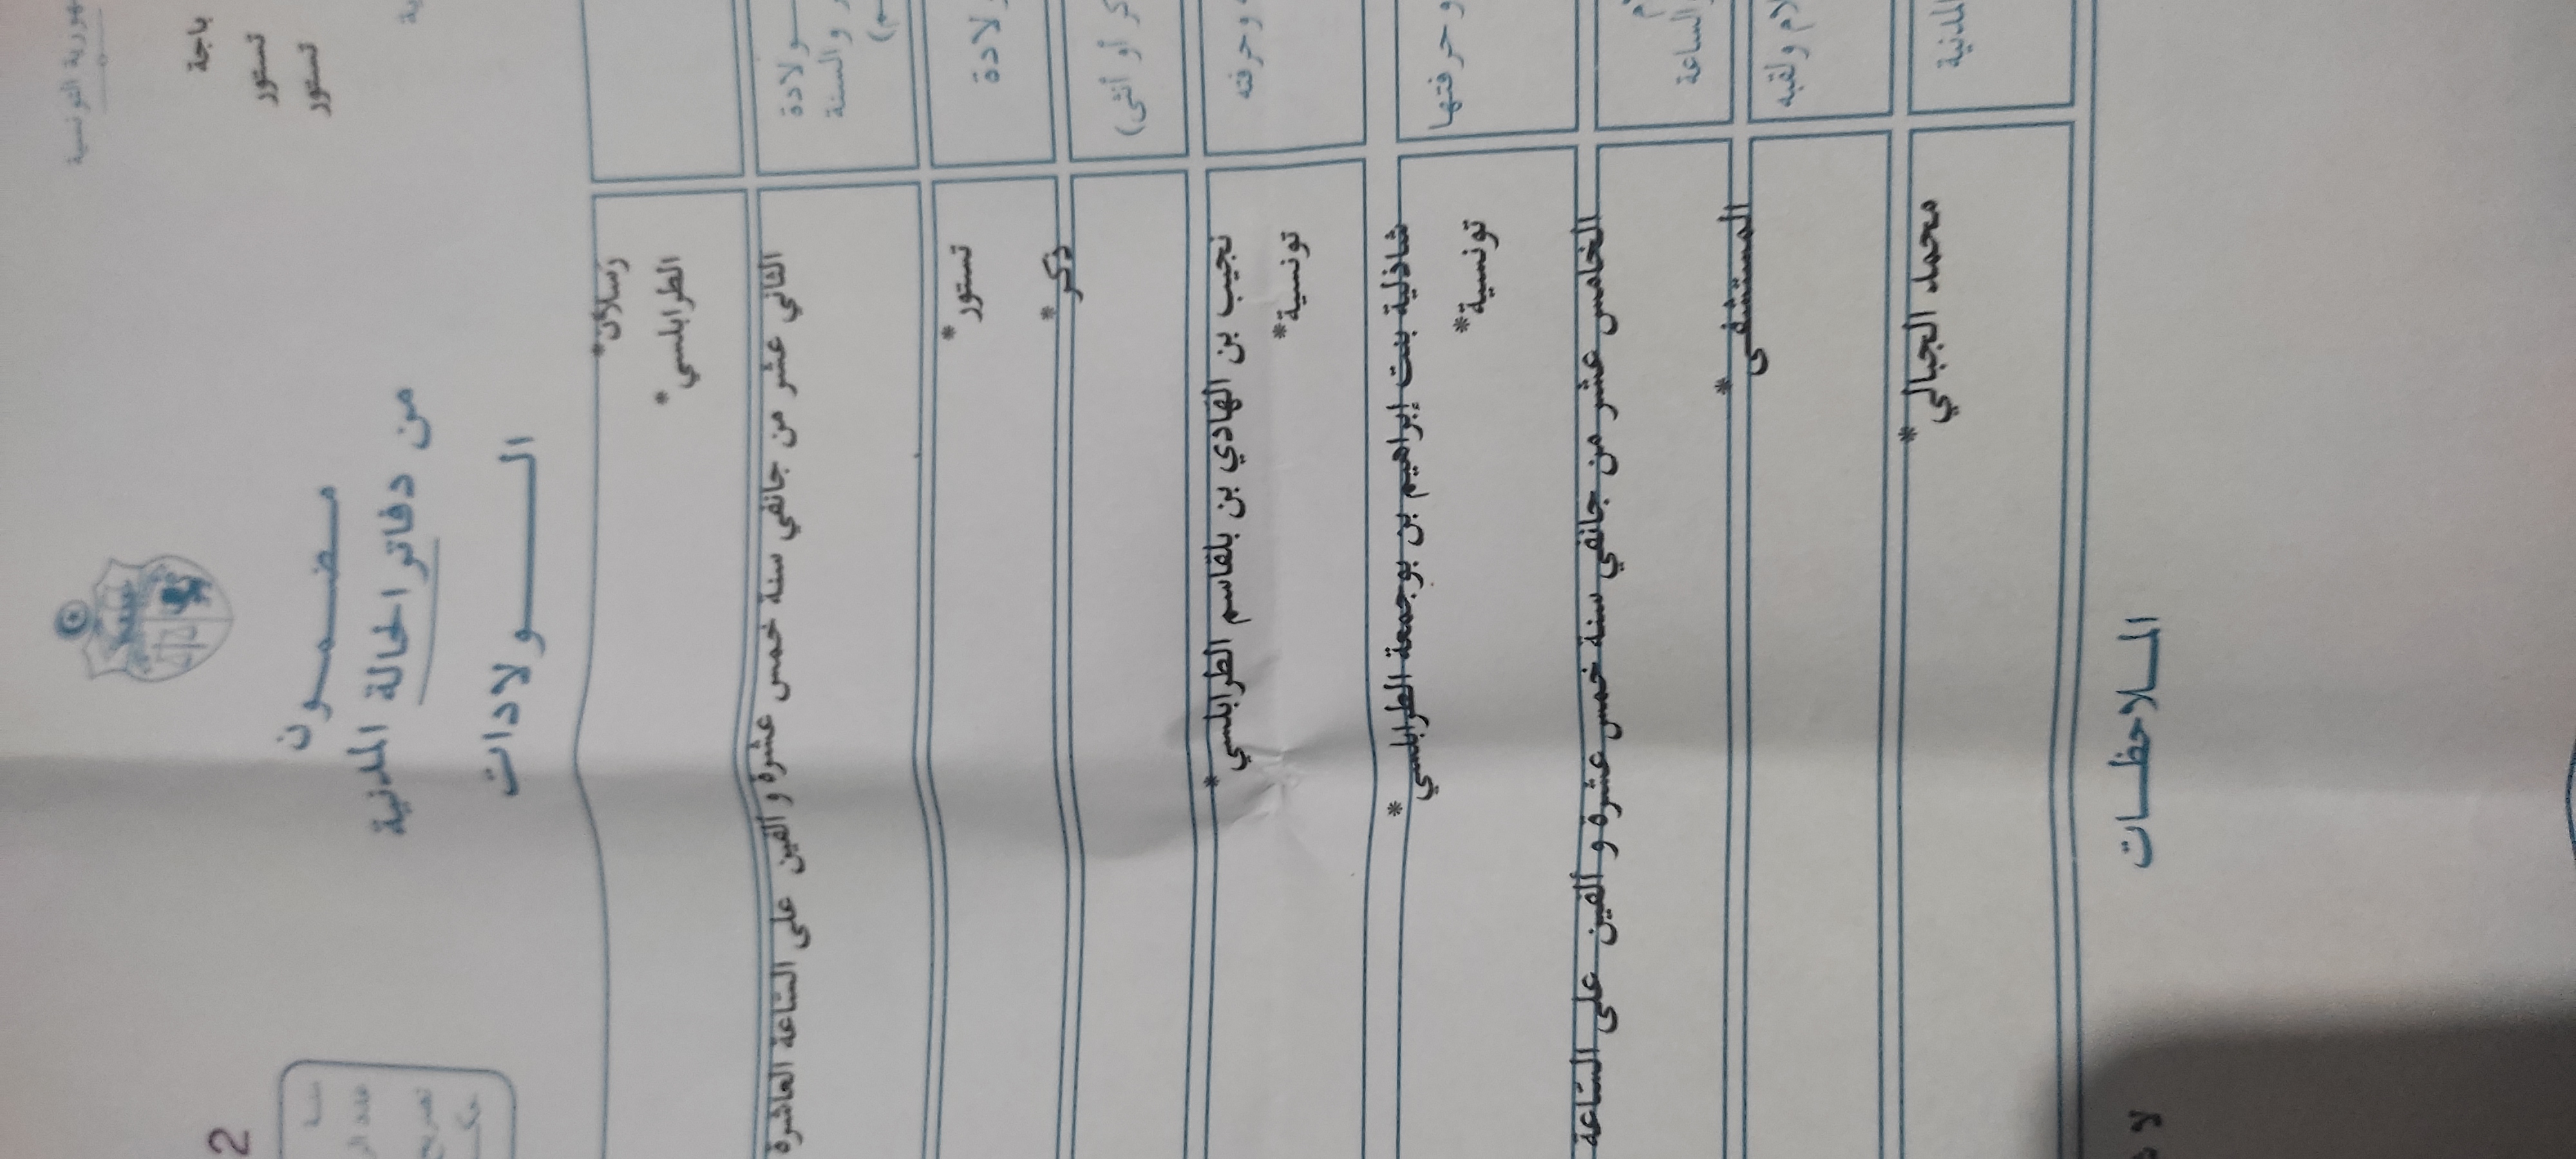 باجة
تستور
تستور
مضمون
من دفاتر الحالة المدنية
الولادات
رسلان*
الطرابلسي*
ولادة
والسنة
الثاني عشر من جانفي سنة خمس عشرة و ألفين على الساعة العاشرة
ولادة
تستور*
أو أنثى)
ذكر*
وحرفته
نجيب بن الهادي بن بلقاسم الطرابلسي*
تونسية*
وحرفتها
شاذلية بنت إبراهيم بن بوجمعة الطرابلسي*
تونسية*
والساعة
الخامس عشر من جانفي سنة خمس عشرة و ألفين على الساعة
ولقبه
المستشفى*
المدنية
محمد الجبالي*
الملاحظات
2